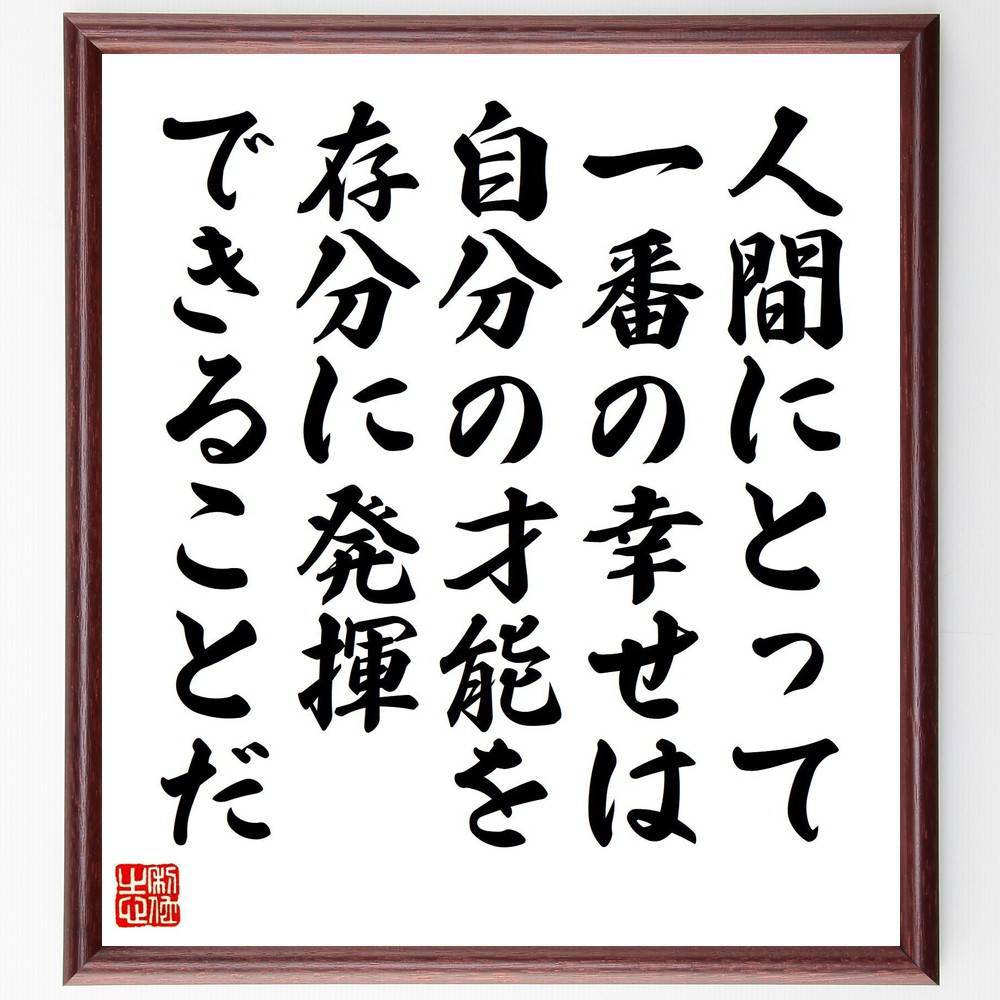 人間にとって
一番の幸せは
自分の才能を
存分に発揮
できることだ